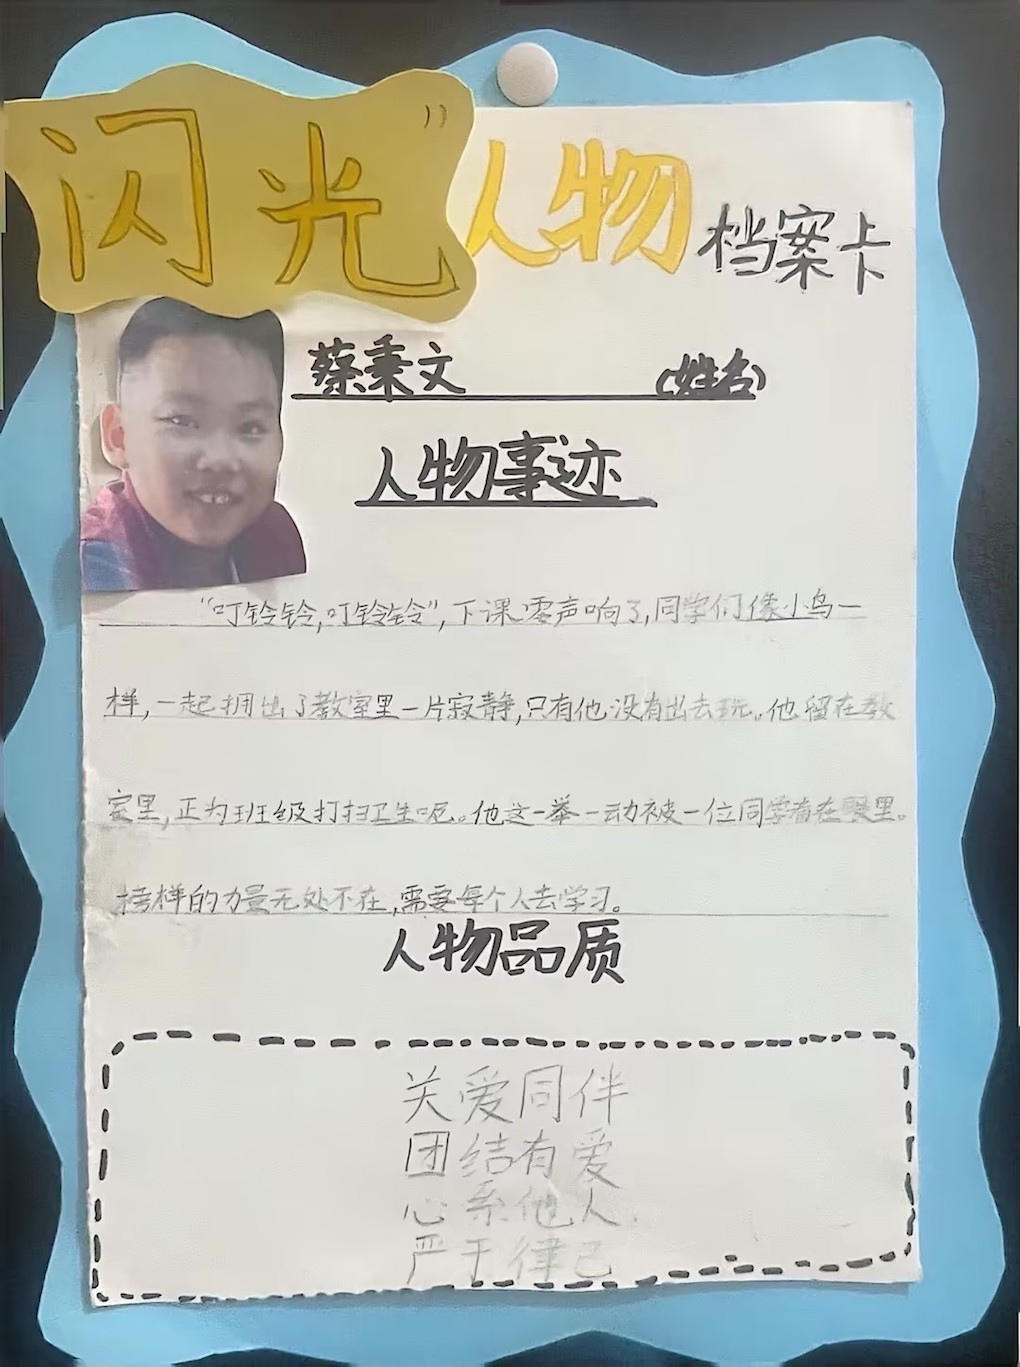 闪光"人物档案卡
蔡秉文 (姓名)
人物事迹
"叮铃铃,叮铃铃",下课零声响了,同学们像小鸟一
样,一起拥出了教室里一片寂静,只有他没有出去玩。他留在教
室里,正为班级打扫卫生呢。他这一举一动被一位同学看在眼里。
榜样的力量无处不在,需要每个人去学习。
人物品质
关爱同伴
团结有爱
心系他人.
严于律己